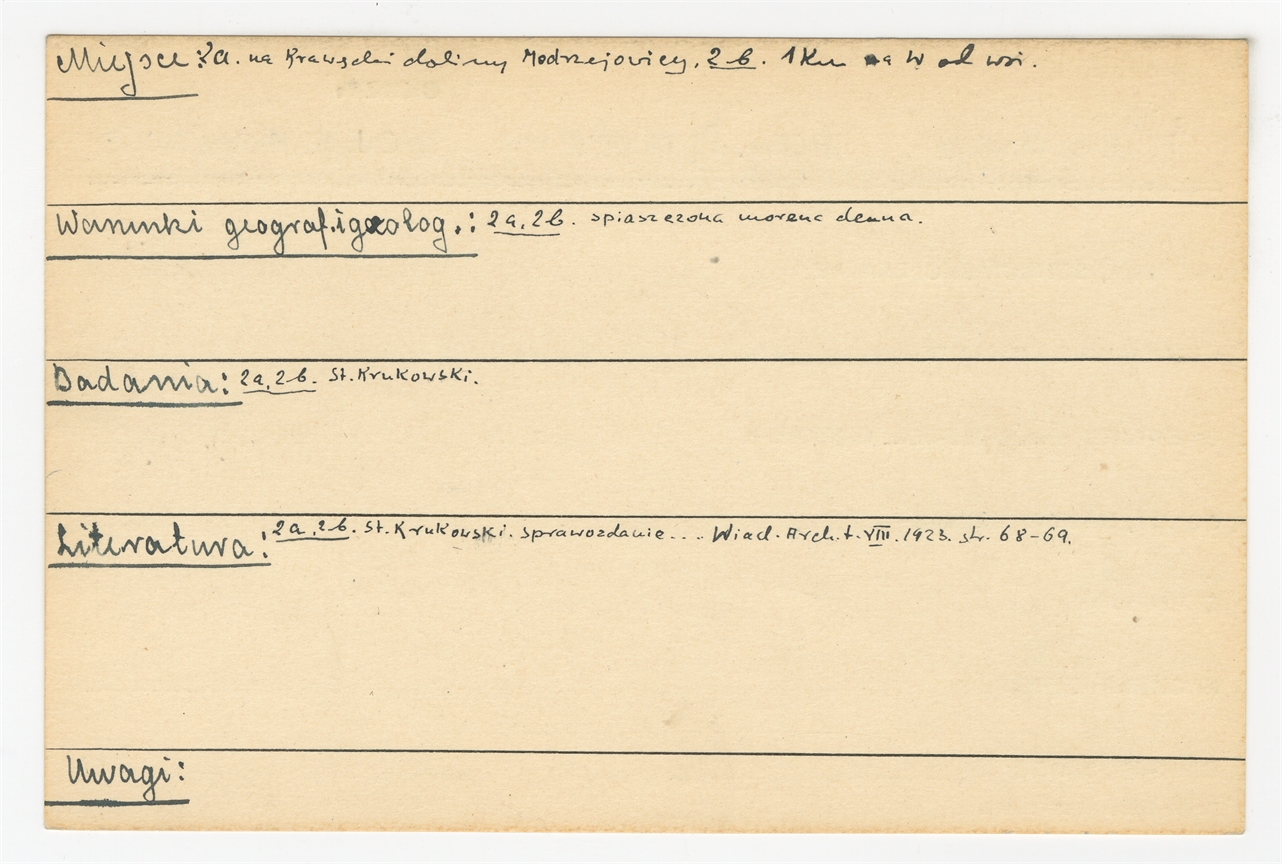 Miejsce: 2a. na Krawędzi doliny Modrzejowicy, 2b. 1 Km na W od wsi.
Warunki geograf.i geolog.: 2a, 2b. spiaszczona morena denna.
Badania: 2a, 2b. St. Krukowski.
Literatura: 2a, 2b. St. Krukowski. sprawozdanie... Wiad. Arch. t. VIII. 1923. str. 68-69.
Uwagi: